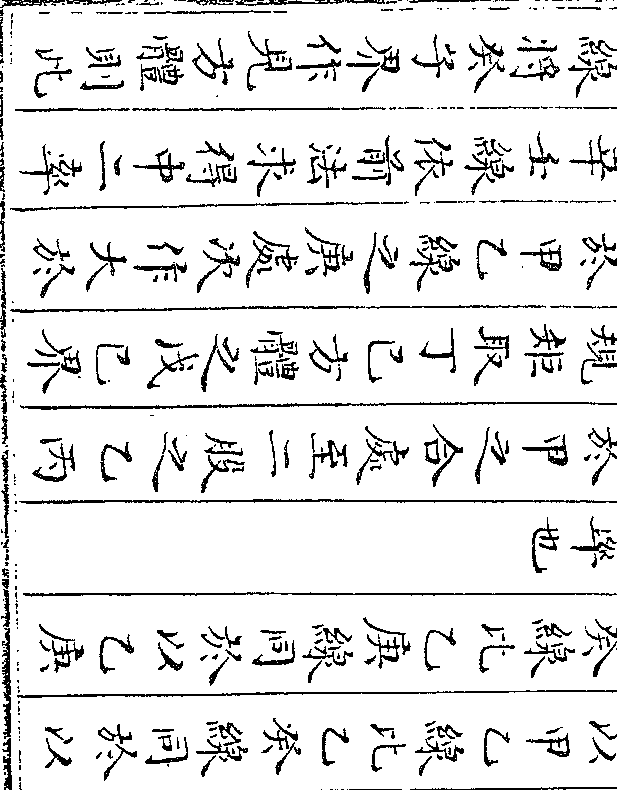 以甲乙線比乙癸線同於以
癸線比乙庚線同於以乙庚
率也
於甲之合處至二股之乙丙
規矩取丁己方體之戊己界
於甲乙線之庚處次作大於
辛壬線依前法求得中二率
線將癸子界作見方體則此